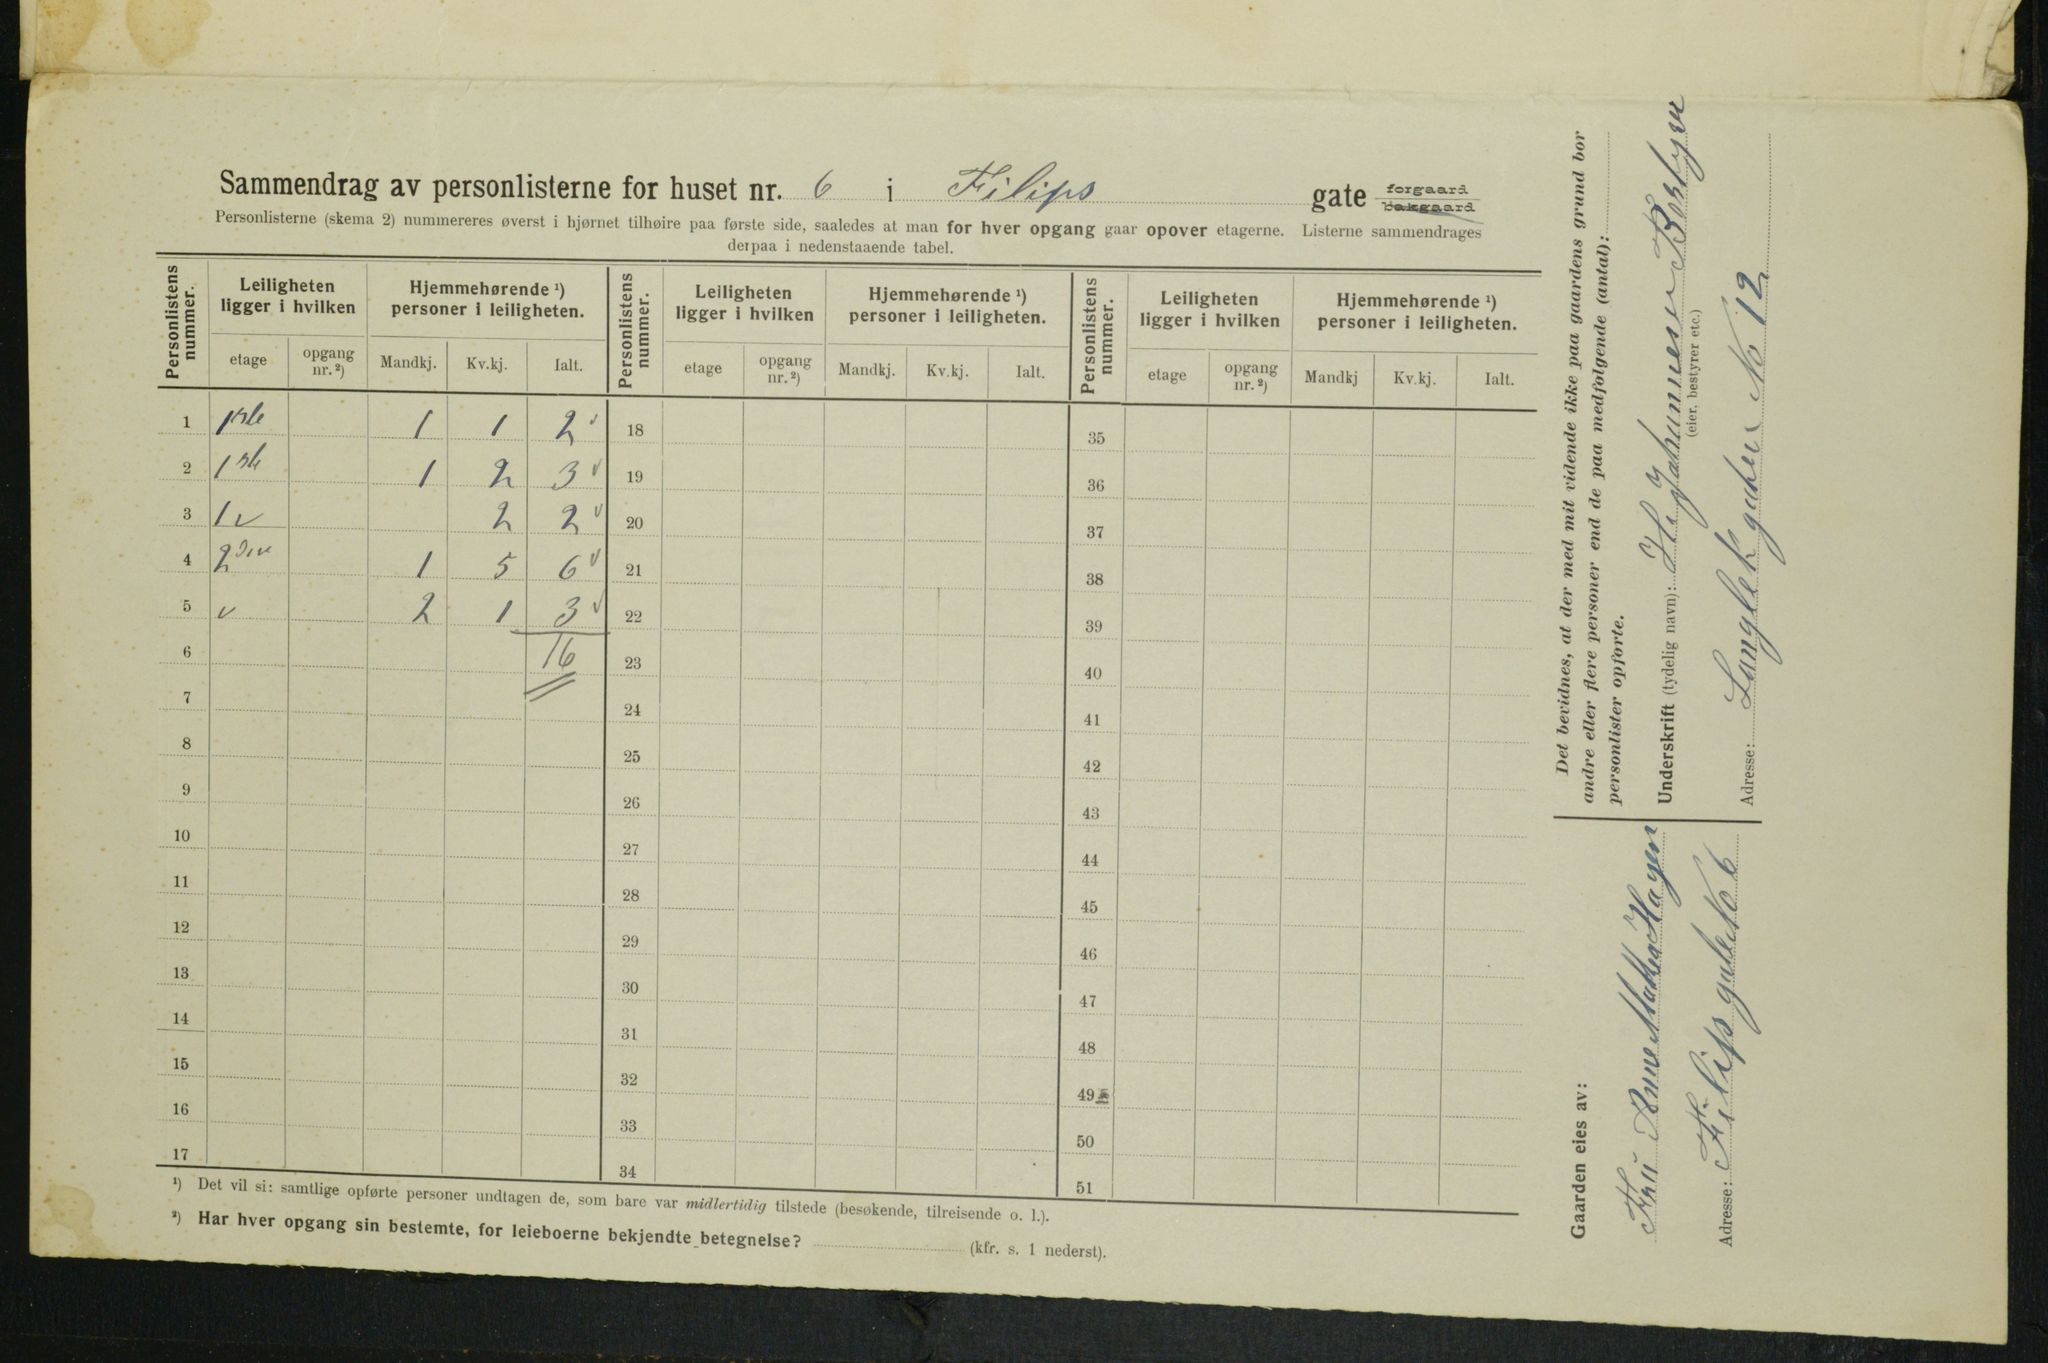 Sammendrag av personlisterne for huset nr. 6 i Filips gate forgaard bakgaard
Personlisterne (skema 2) nummereres øverst i hjørnet tilhøire paa første side, saaledes at man for hver opgang gaar opover etagerne. Listerne sammendrages
derpaa i nedenstaaende tabel.
Personlistens nummer. Leiligheten ligger i hvilken Hjemmehørende ¹) personer i leiligheten. Personlistens nummer. Leiligheten ligger i hvilken Hjemmehørende ¹) personer i leiligheten. Personlistens nummer. Leiligheten ligger i hvilken Hjemmehørende ¹) personer i leiligheten.
etage opgang nr. ²) Mandkj. Kv.kj. Ialt. etage opgang nr. ²) Mandkj. Kv.kj. Ialt. etage opgang nr. ²) Mandkj Kv.kj. Ialt.
1 1ste 1 1 2 v 18 35
2 1ste 1 2 3 v 19 36
3 1 v 2 2 v 20 37
4 2 1 5 6 v 21 38
5 v 2 1 3 v 22 39
6 16 23 40
7 24 41
8 25 42
9 26 43
10 27 44
11 28 45
12 29 46
13 30 47
14 31 48
15 32 49
16 33 50
17 34 51
¹) Det vil si: samtlige opførte personer undtagen de, som bare var midlertidig tilstede (besøkende, tilreisende o. l.).
²) Har hver opgang sin bestemte, for leieboerne bekjendte betegnelse? (kfr. s. 1 nederst).
Det bevidnes, at der med mit vidende ikke paa gaardens grund bor
andre eller flere personer end de paa medfølgende (antal):
personlister opførte.
Underskrift (tydelig navn): H. Johannesen Bestyrer
(eier, bestyrer etc.)
Adresse: No 12
Gaarden eies av:
Fru Anne Mathea Hagen
Adresse: Filips gate No 6